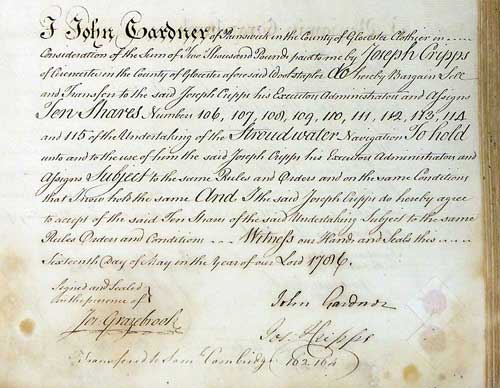 I John Gardner of Painswick in the County of Glocester Clothier in
Consideration of the Sum of Two Thousand Pounds paid to me by Joseph Cripps
of Cirencester in the County of Glocester aforesaid Woolstapler Do hereby Bargain Sell
and Transfer to the said Joseph Cripps his Executors Administrators and Assigns
Ten Shares Numbers 106, 107, 108, 109, 110, 111, 112, 113, 114
and 115 of the Undertaking of the Stroudwater Navigation To hold
unto and to the use of him the said Joseph Cripps his Executors Administrators and
Assigns Subject to the same Rules and Orders and on the same Conditions
that I now hold the same And I the said Joseph Cripps do hereby agree
to accept of the said Ten Shares of the said Undertaking Subject to the same
Rules Orders and Conditions Witness our Hands and Seals this
Sixteenth Day of May in the Year of our Lord 1786.
Signed and Sealed
in the presence of
Jos. Grazebrook
John Gardner
Jos. Cripps
Transfered to Sam Cambridge 162.164